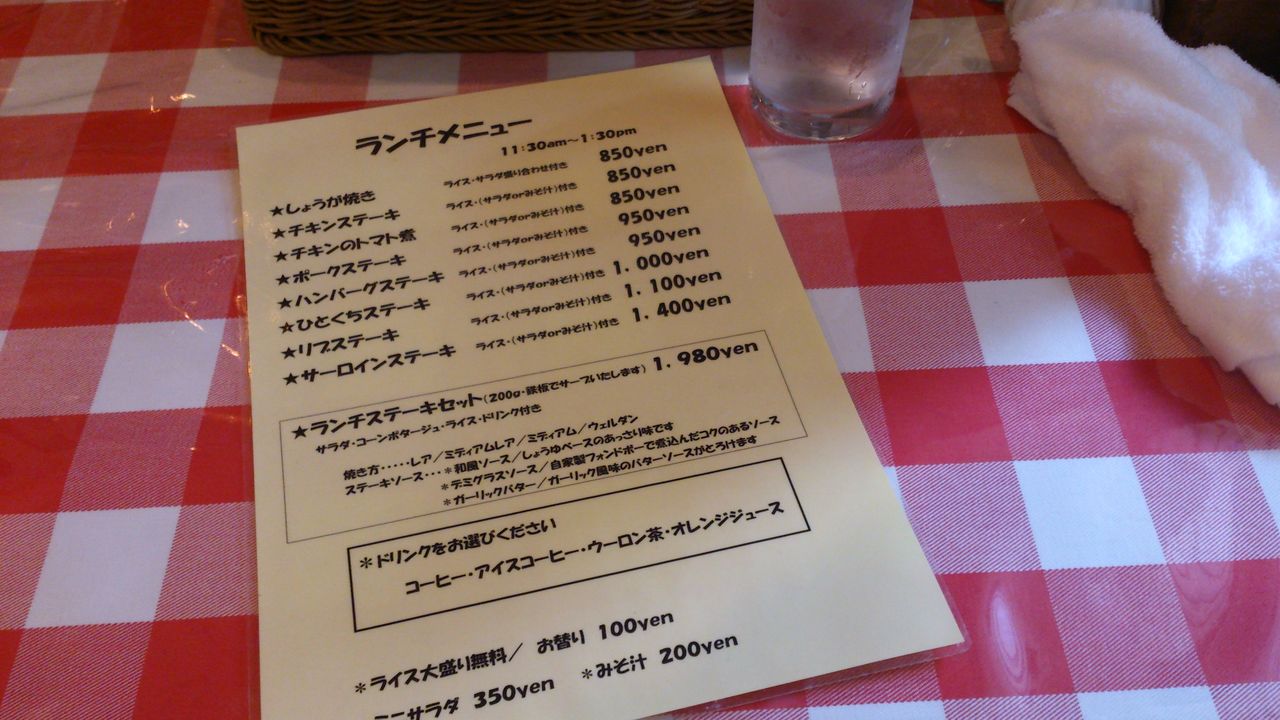 ランチメニュー
11:30am～1:30pm
★しょうが焼き ライス・サラダ盛り合わせ付き 850yen
★チキンステーキ ライス・(サラダorみそ汁)付き 850yen
★チキンのトマト煮 ライス・(サラダorみそ汁)付き 850yen
★ポークステーキ ライス・(サラダorみそ汁)付き 950yen
★ハンバーグステーキ ライス・(サラダorみそ汁)付き 950yen
★ひとくちステーキ ライス・(サラダorみそ汁)付き 1.000yen
★リブステーキ ライス・(サラダorみそ汁)付き 1.100yen
★サーロインステーキ ライス・(サラダorみそ汁)付き 1.400yen
★ランチステーキセット(200g・鉄板でサーブいたします) 1.980yen
サラダ・コーンポタージュ・ライス・ドリンク付き
焼き方・・・・・レア／ミディアムレア／ミディアム／ウェルダン
ステーキソース・・・＊和風ソース／しょうゆベースのあっさり味です
＊デミグラスソース／自家製フォンドボーで煮込んだコクのあるソース
＊ガーリックバター／ガーリック風味のバターソースがとろけます
＊ドリンクをお選びください
コーヒー・アイスコーヒー・ウーロン茶・オレンジジュース
＊ライス大盛り無料／ お替り 100yen
ニサラダ 350yen ＊みそ汁 200yen